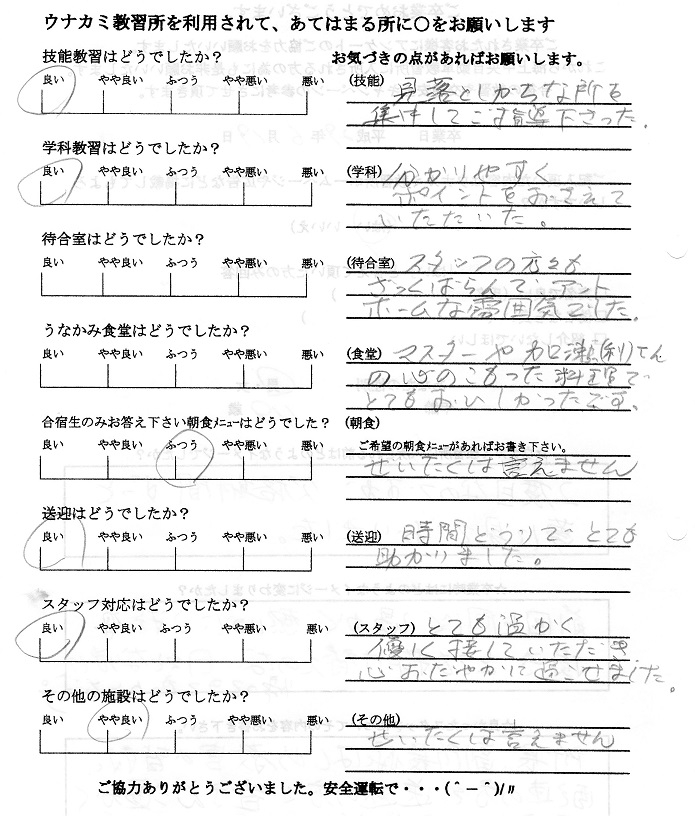 ウナカミ教習所を利用されて、あてはまる所に〇をお願いします
技能教習はどうでしたか？
お気づきの点があればお願いします。
良い やや良い ふつう やや悪い 悪い
(技能) 見落としがちな所を
集中してご指導下さった。
学科教習はどうでしたか？
良い やや良い ふつう やや悪い 悪い
(学科) 分かりやすく
ポイントをおさえて
いただいた。
待合室はどうでしたか？
良い やや良い ふつう やや悪い 悪い
(待合室) スタッフの方々も
ざっくばらんで、アット
ホームな雰囲気でした。
うなかみ食堂はどうでしたか？
良い やや良い ふつう やや悪い 悪い
(食堂) マスターや
の心のこもった料理で
とてもおいしかったです。
合宿生のみお答え下さい朝食ﾒﾆｭｰはどうでしたか？
(朝食)
良い やや良い ふつう やや悪い 悪い
ご希望の朝食ﾒﾆｭｰがあればお書き下さい。
ぜいたくは言えません
送迎はどうでしたか？
良い やや良い ふつう やや悪い 悪い
(送迎) 時間どうりで とても
助かりました。
スタッフ対応はどうでしたか？
良い やや良い ふつう やや悪い 悪い
(スタッフ) とても温かく
優しく接していただき
心おだやかに過ごせました。
その他の施設はどうでしたか？
良い やや良い ふつう やや悪い 悪い
(その他)
ぜいたくは言えません
ご協力ありがとうございました。安全運転で・・・(＾－＾)/〃